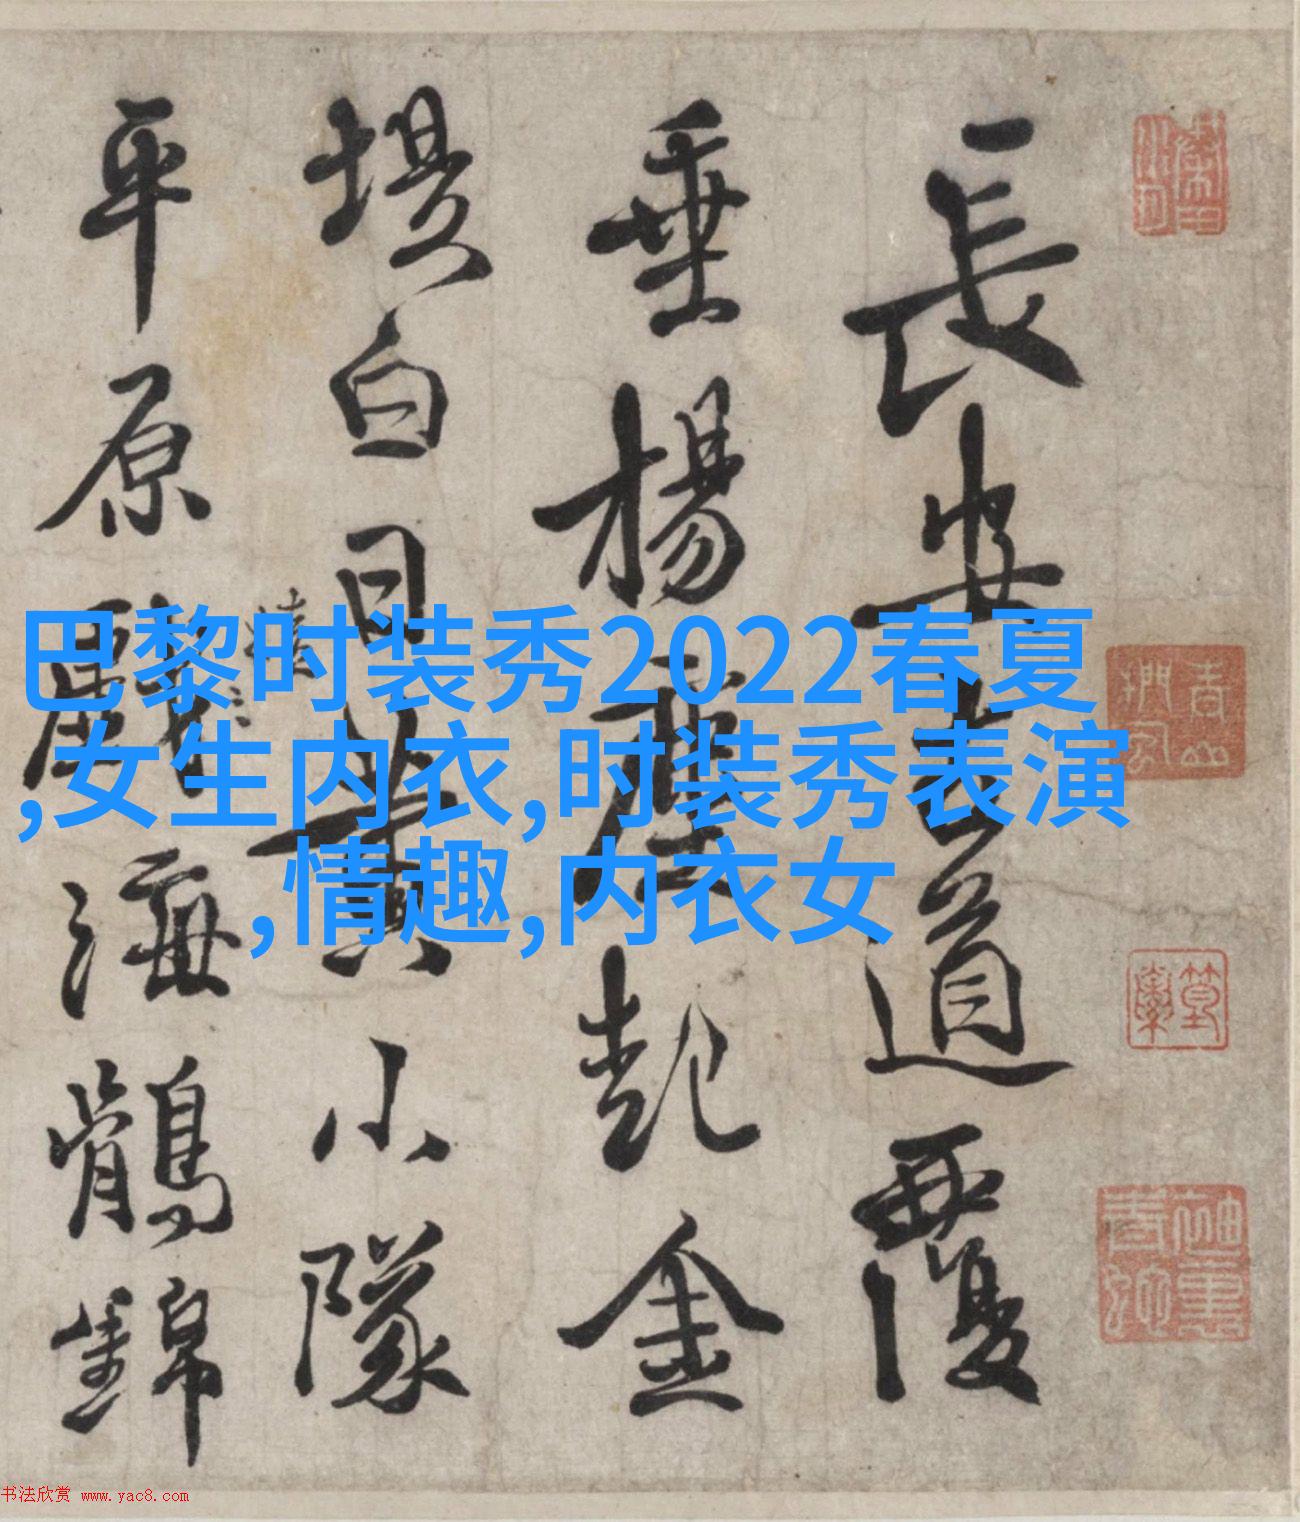 長安古道覆
垂楊塵起金
堤白日黃小隊
平原戲海鶻錦
巴黎时装秀2022春夏
,女生内衣,时装秀表演
,情趣,内衣女
书法欣赏 www.yac8.com